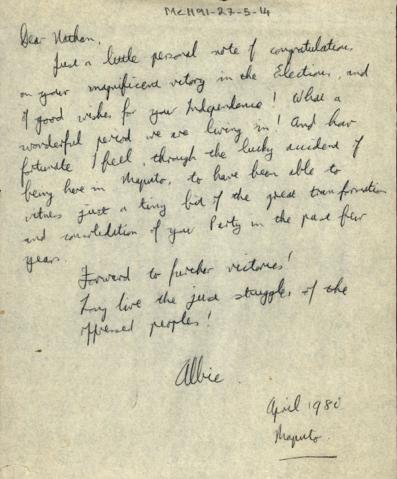 McH91-27-5-14
Dear Nathan,
Just a little personal note of congratulations
on your magnificent victory in the Elections, and
of good wishes for your Independence! What a
wonderful period we are living in! And how
fortunate I feel, through the lucky accident of
being here in Maputo, to have been able to
witness just a tiny bit of the great transformation
and consolidation of your Party in the past few
years.
Forward to further victories!
Long live the just struggles of the
oppressed peoples!
Albie.
April 1980
Maputo.